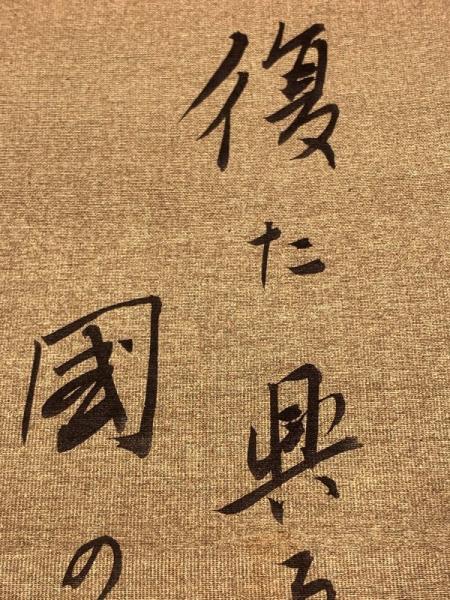 復た興
國の